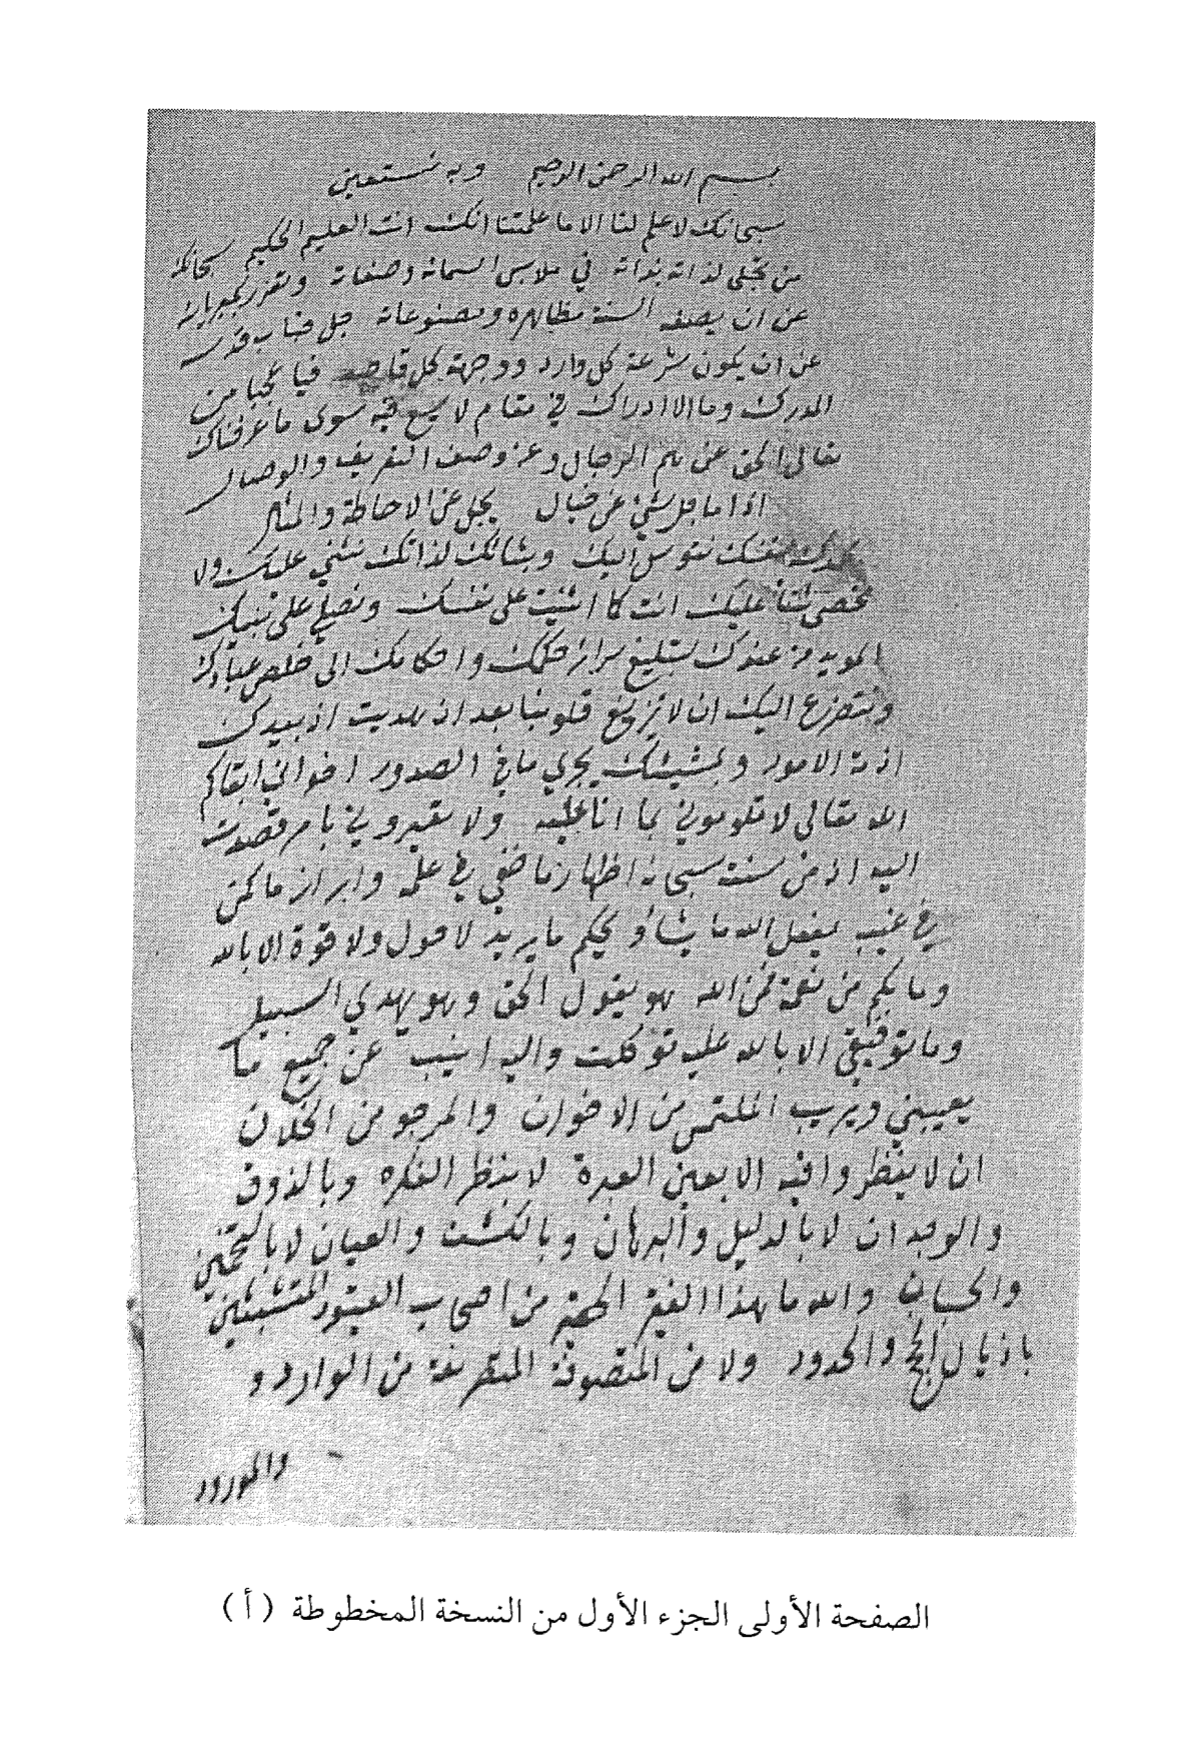 بسم الله الرحمن الرحيم وبه نستعين
سبحانك لا علم لنا الا ما علمتنا انك انت العليم الحكيم سبحانك
من تجلى لذاته بذاته في ملابس اسمائه وصفاته وتعزز بكبريائه
عن ان يصفه السنة مظاهره ومصنوعاته جل جناب قدس
عن ان يكون شرعة كل وارد ووجهة كل قاصد فيا عجبا من
المدرك وما الادراك في مقام لا يسع فيه سوى ما عرفناك
تعالى الحق عن همم الرجال وعز وصف التعريف والوصال
اذا ما جل شيء عن خيال يجل عن الاحاطة والمثال
نتوسل اليك وبثنائك لذاتك نثني عليك ولا
نحصي ثناء عليك انت كما اثنيت على نفسك ونصلي على نبيك
المويد من عندك بتبليغ سرائر حكمك واحكامك الى خلص عبادك
ونتضرع اليك ان لا تزيغ قلوبنا بعد اذ هديت اذ بيدك
ازمة الامور وبمشيتك يجري ما في الصدور اخواني ابقاكم
الله تعالى لا تلوموني بما انا عليه ولا تعيروني بامر قصدت
اليه اذ من سنته سبحانه اظهار ما خفي في علمه وابراز ما كمن
في غيبه يفعل الله ما يشاء ويحكم ما يريد لا حول ولا قوة الا بالله
وما بكم من نعمة فمن الله هو يقول الحق وهو يهدي السبيل
وما توفيقي الا بالله عليه توكلت واليه انيب عن جميع ما
يعيبني ويريب الملتمس من الاخوان والمرجو من الخلان
ان لا ينظروا فيه الا بعين العبرة لا بنظر الفكره وبالذوق
والوجدان لا بالدليل والبرهان وبالكشف والعيان لا بالتخمين
والحسبان والله ما هذا الفقير الحقير من اصحاب القيود المتشبثين
باذيال الحجج والحدود ولا من المتصوفة المتفرعة من الوارد و
والمورود
الصفحة الأولى الجزء الأول من النسخة المخطوطة ( أ )